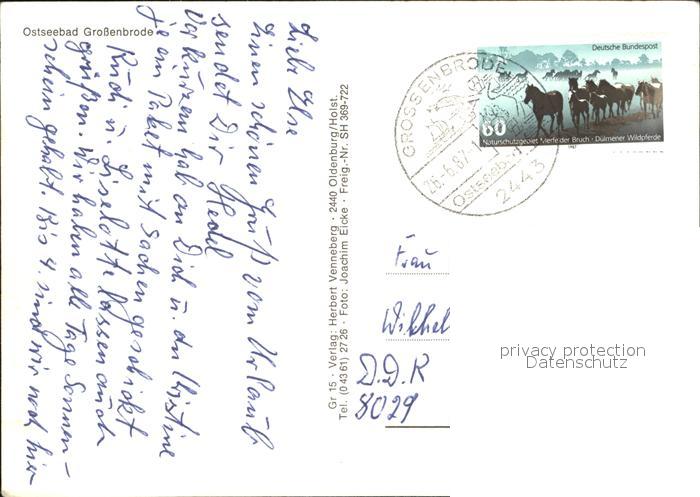 Ostseebad Großenbrode
Liebe Ilse
Einen schönen Gruß vom Urlaub
sendet Dir Hedel
Vor kurzem hab an Dich u. an Christine
je ein Paket mit Sachen geschickt
Rudi u. Liselotte lassen auch
grüßen. Wir haben alle Tage Sonnen-
schein gehabt. Bis 4. sind wir noch hier
Gr 15 · Verlag: Herbert Venneberg · 2440 Oldenburg/Holst.
Tel. (04361) 2726 · Foto: Joachim Eicke · Freig.-Nr. SH 369-722
GROSSENBRODE
26.-6.87.-1
Ostsee
2443
Deutsche Bundespost
60
Naturschutzgebiet Merfelder Bruch · Dülmener Wildpferde
1987
Frau
Wilhel
D.D.R
8029
privacy protection
Datenschutz